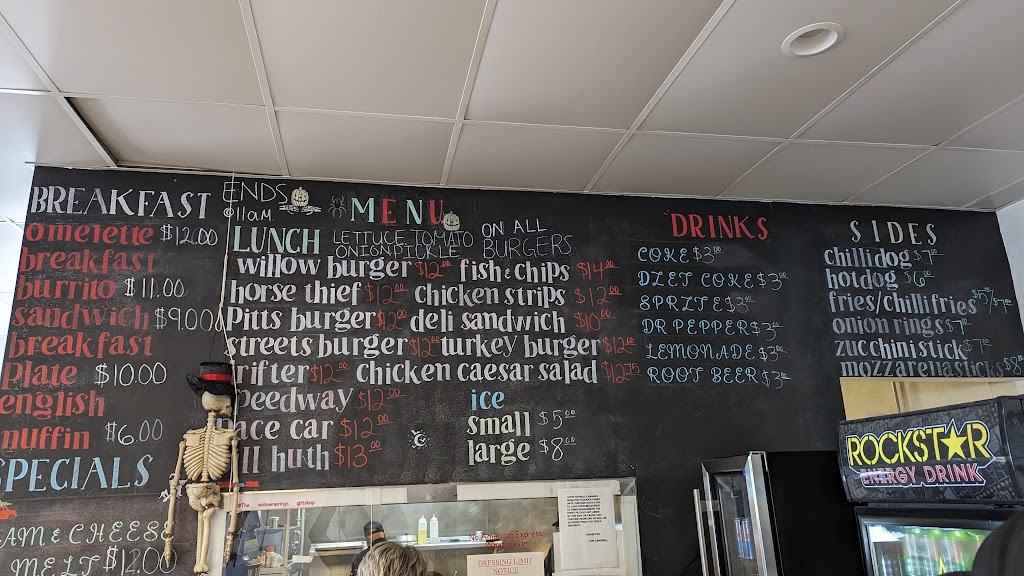 BREAKFAST
ENDS
@11AM
omelette $12.00
breakfast
burrito $11.00
sandwich $9.00
breakfast
plate $10.00
english
muffin $6.00
SPECIALS
HAM & CHEESE
MELT $12.00
MENU
LUNCH
LETTUCE, TOMATO
ONION, PICKLE
ON ALL
BURGERS
willow burger $12.00
horse thief $12.00
Pitts burger $12.00
streets burger $12.00
drifter $12.00
speedway $12.00
race car $12.00
$13.00
fish & chips $14.00
chicken strips $12.00
deli sandwich $10.00
turkey burger $12.00
chicken caesar salad $12.75
ice
small $5.00
large $8.00
DRINKS
COKE $3.00
DIET COKE $3.00
SPRITE $3.00
DR PEPPER $3.00
LEMONADE $3.00
ROOT BEER $3.00
SIDES
chillidog $7.00
hotdog $6.00
fries/chillifries $5.00/$7.00
onion rings $7.00
zucchini stick $7.00
mozzarena sticks $8.00
ROCKSTAR
ENERGY DRINK
@The willowsprings giftshop
No American Express
DRESSING LIMIT
NOTICE